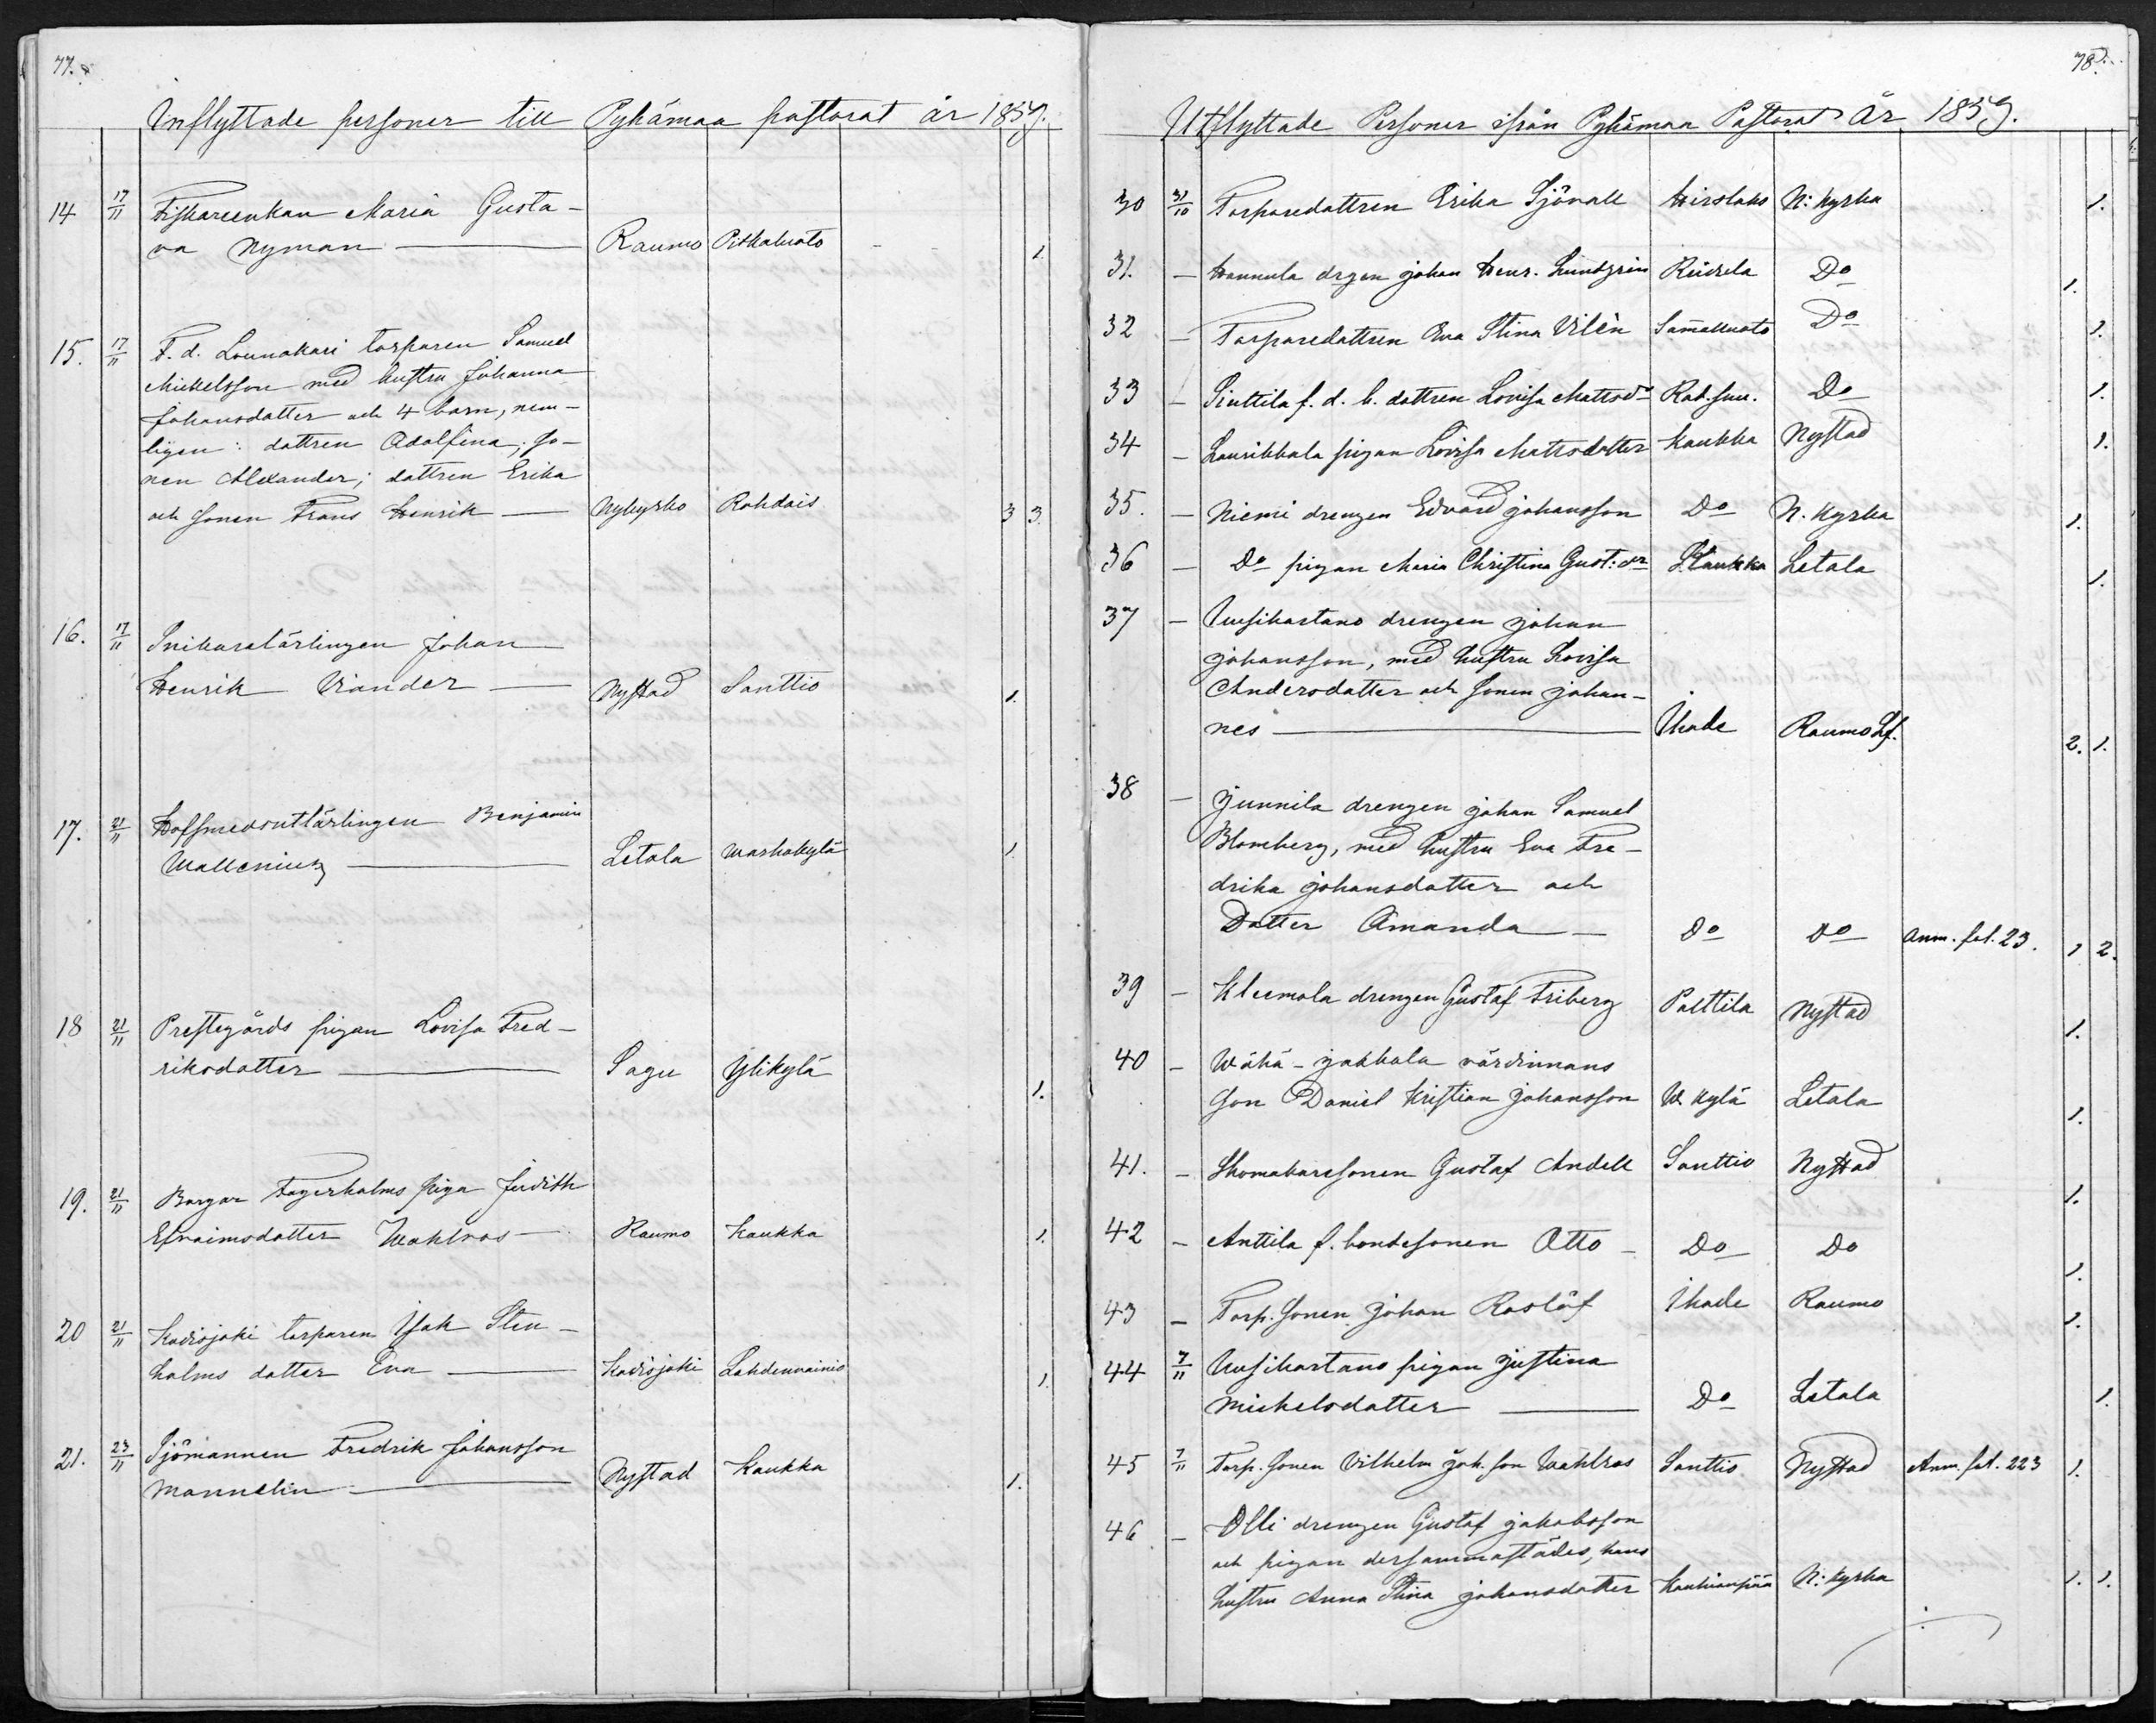 77.
Inflyttade personer till Pyhämaa pastorat år 1859.
14 17/11 Fiskareenkan Maria Gusta-
va Nyman — Raumo Pitkäluoto 1
15. 17/11 F. d. Lounakari torparen Samuel
Mickelsson med hustru Johanna
Johansdotter och 4 barn, nem-
ligen: dottren Adolfina, so-
nen Alexander; dottren Erika
och sonen Frans Henrik — Nykyrko Rohdais 3 3.
16. 17/11 Snikarelärlingen Johan
Henrik Viander — Nystad Santtio 1.
17. 21/11 Benjamin
Wallenius — Letala Warhokylä 1.
18 21/11 Prestegårds pigan Lovisa Fred-
riksdotter — Sagu Ylikylä 1.
19. 21/11 Borgar Fagerholms piga Judith
Efraimsdotter Wahlros — Raumo Kaukka 1.
20 21/11 Kodisjoki torparen Isak Sten-
holms dotter Eva — Kodisjoki Lahdenvainio 1.
21. 23/11 Sjömannen Fredrik Johansson
Mannelin — Nystad Kaukka 1.
78.
Utflyttade Personer ifrån Pyhämaa Pastorat År 1859.
30 31/10 Torparedottren Erika Sjövall Hirslaks N: Kyrka 1.
31. — Hannula drgen Johan Henr. Lundgrén Reidela Do 1.
32 — Torparedottren Eva Stina Vilén Sam̄alluoto Do 1.
33 — Sinttila f. d. b. dottren Lovisa Mattsdr Rob.suu. Do 1.
34 — Laurikkala pigan Lovisa Mattsdotter Kaukka Nystad 1.
35. — Niemi drengen Edvard Johansson Do N. Kyrka 1.
36 — Do pigan Maria Christina Gust: dr Kaukka Letala 1.
37 — Uusikartano drengen Johan
Johansson, med hustru Lovisa
Andersdotter och sonen Johan-
nes — Ihode Raumo Lf. 2. 1.
38 — Junnila drengen Johan Samuel
Blomberg, med hustru Eva Fre-
drika Johansdotter och
Dotter Amanda — Do Do Anm. fol. 23. 1 2.
39 — Kleemola drengen Gustaf Friberg Polttila Nystad 1.
40 — Wähä-Jakkola värdinnans
son Daniel Kristian Johansson W. Kylä Letala 1.
41. — Skomakaresonen Gustaf Andell Santtio Nystad 1.
42 — Anttila f. bondesonen Otto — Do Do 1.
43 — Torp. sonen Johan Roslöf Ihode Raumo 1.
44 7/11 Uusikartano pigan Justina
Michelsdotter — Do Letala 1.
45 7/11 Torp. sonen Vilhelm Joh. son Wahlros Santtio Nystad Anm. fol. 223 1.
46 — Olli drengen Gustaf Jakobsson
och pigan dersammastädes, hans
hustru Anna Stina Johansdotter Kauhianpää N: Kyrka 1. 1.